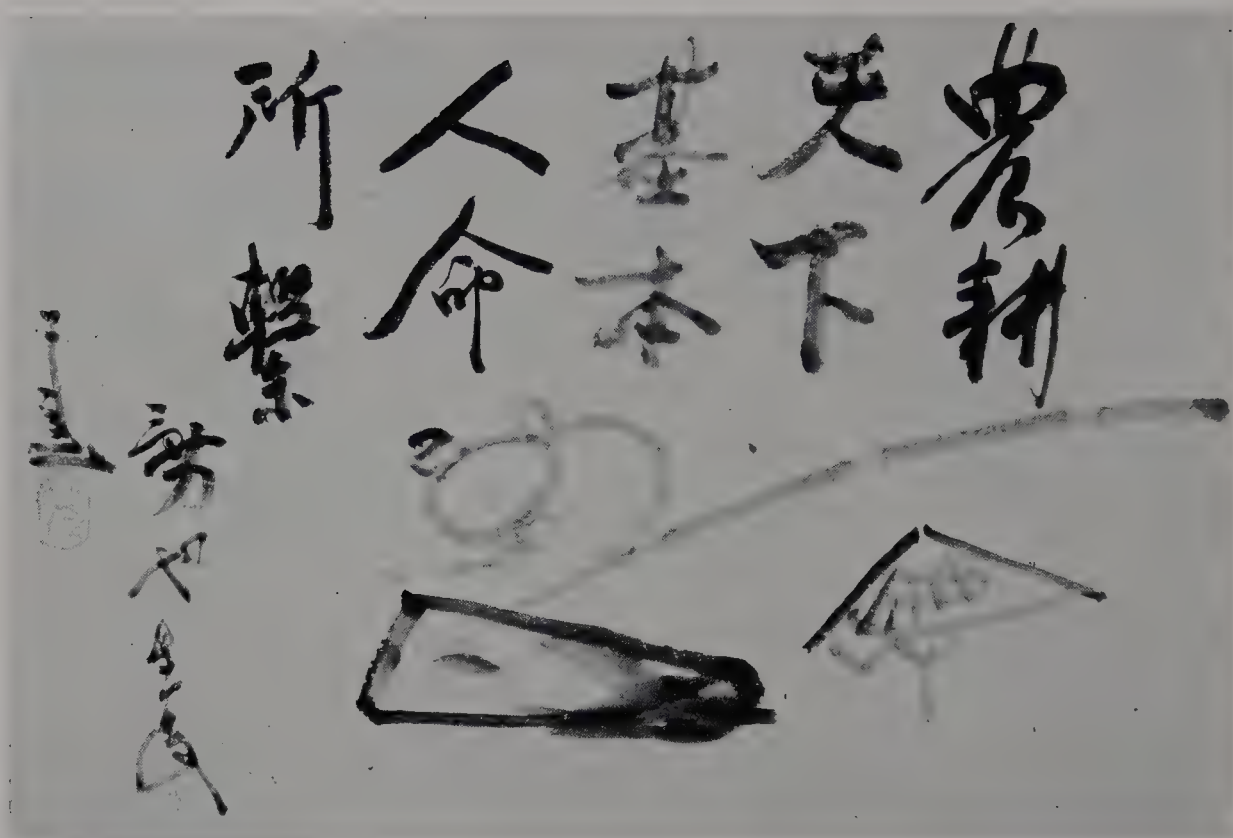 農耕
天下
基本
人命
所繋